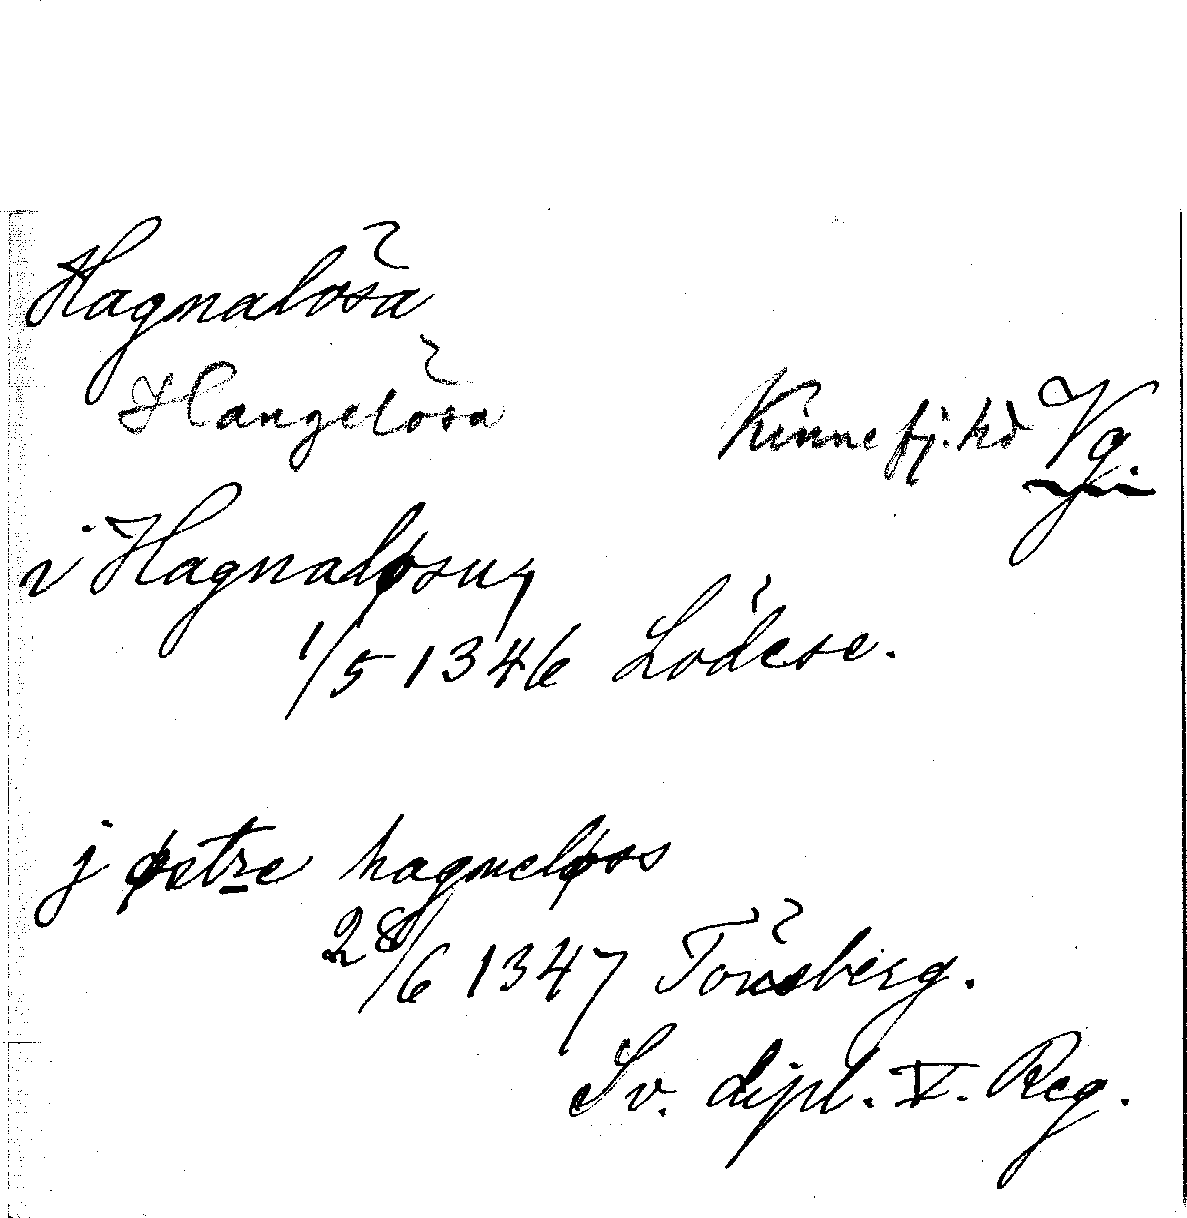 Hagnalösa
Hangelösa Kinnefj. hd Vg.
i Hagnaløsu,
1/5 1346 Lödese.
j østre hagneløss
28/6 1347 Tönsberg.
Sv. dipl. V. Reg.